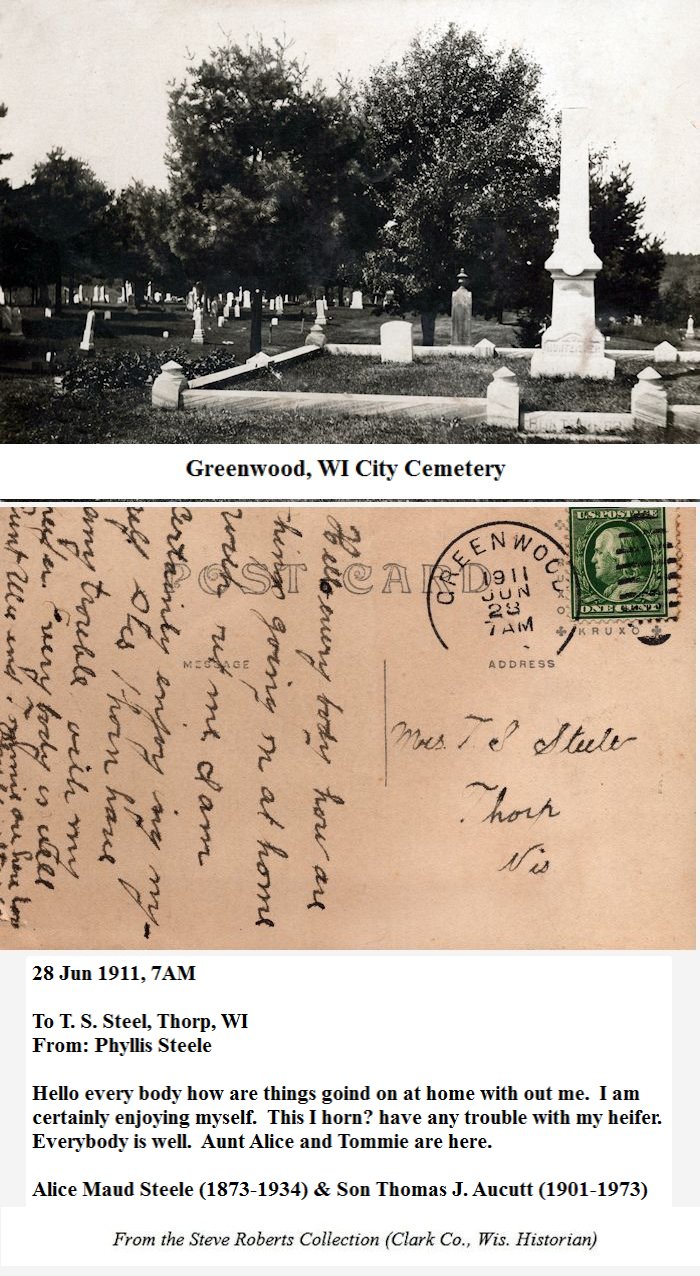 Greenwood, WI City Cemetery
POST CARD
GREENWOOD
1911
JUN
28
7AM
U.S. POSTAGE
ONE CENT
KRUXO
MESSAGE
ADDRESS
Hello every body how are
things going on at home
with out me I am
certainly enjoy ing my-
self
have
any trouble with my
every body is well
Mrs. T S Steele
Thorp
Wis
28 Jun 1911, 7AM
To T. S. Steel, Thorp, WI
From: Phyllis Steele
Hello every body how are things goind on at home with out me.  I am
certainly enjoying myself.  This I horn? have any trouble with my heifer.
Everybody is well.  Aunt Alice and Tommie are here.
Alice Maud Steele (1873-1934) & Son Thomas J. Aucutt (1901-1973)
From the Steve Roberts Collection (Clark Co., Wis. Historian)